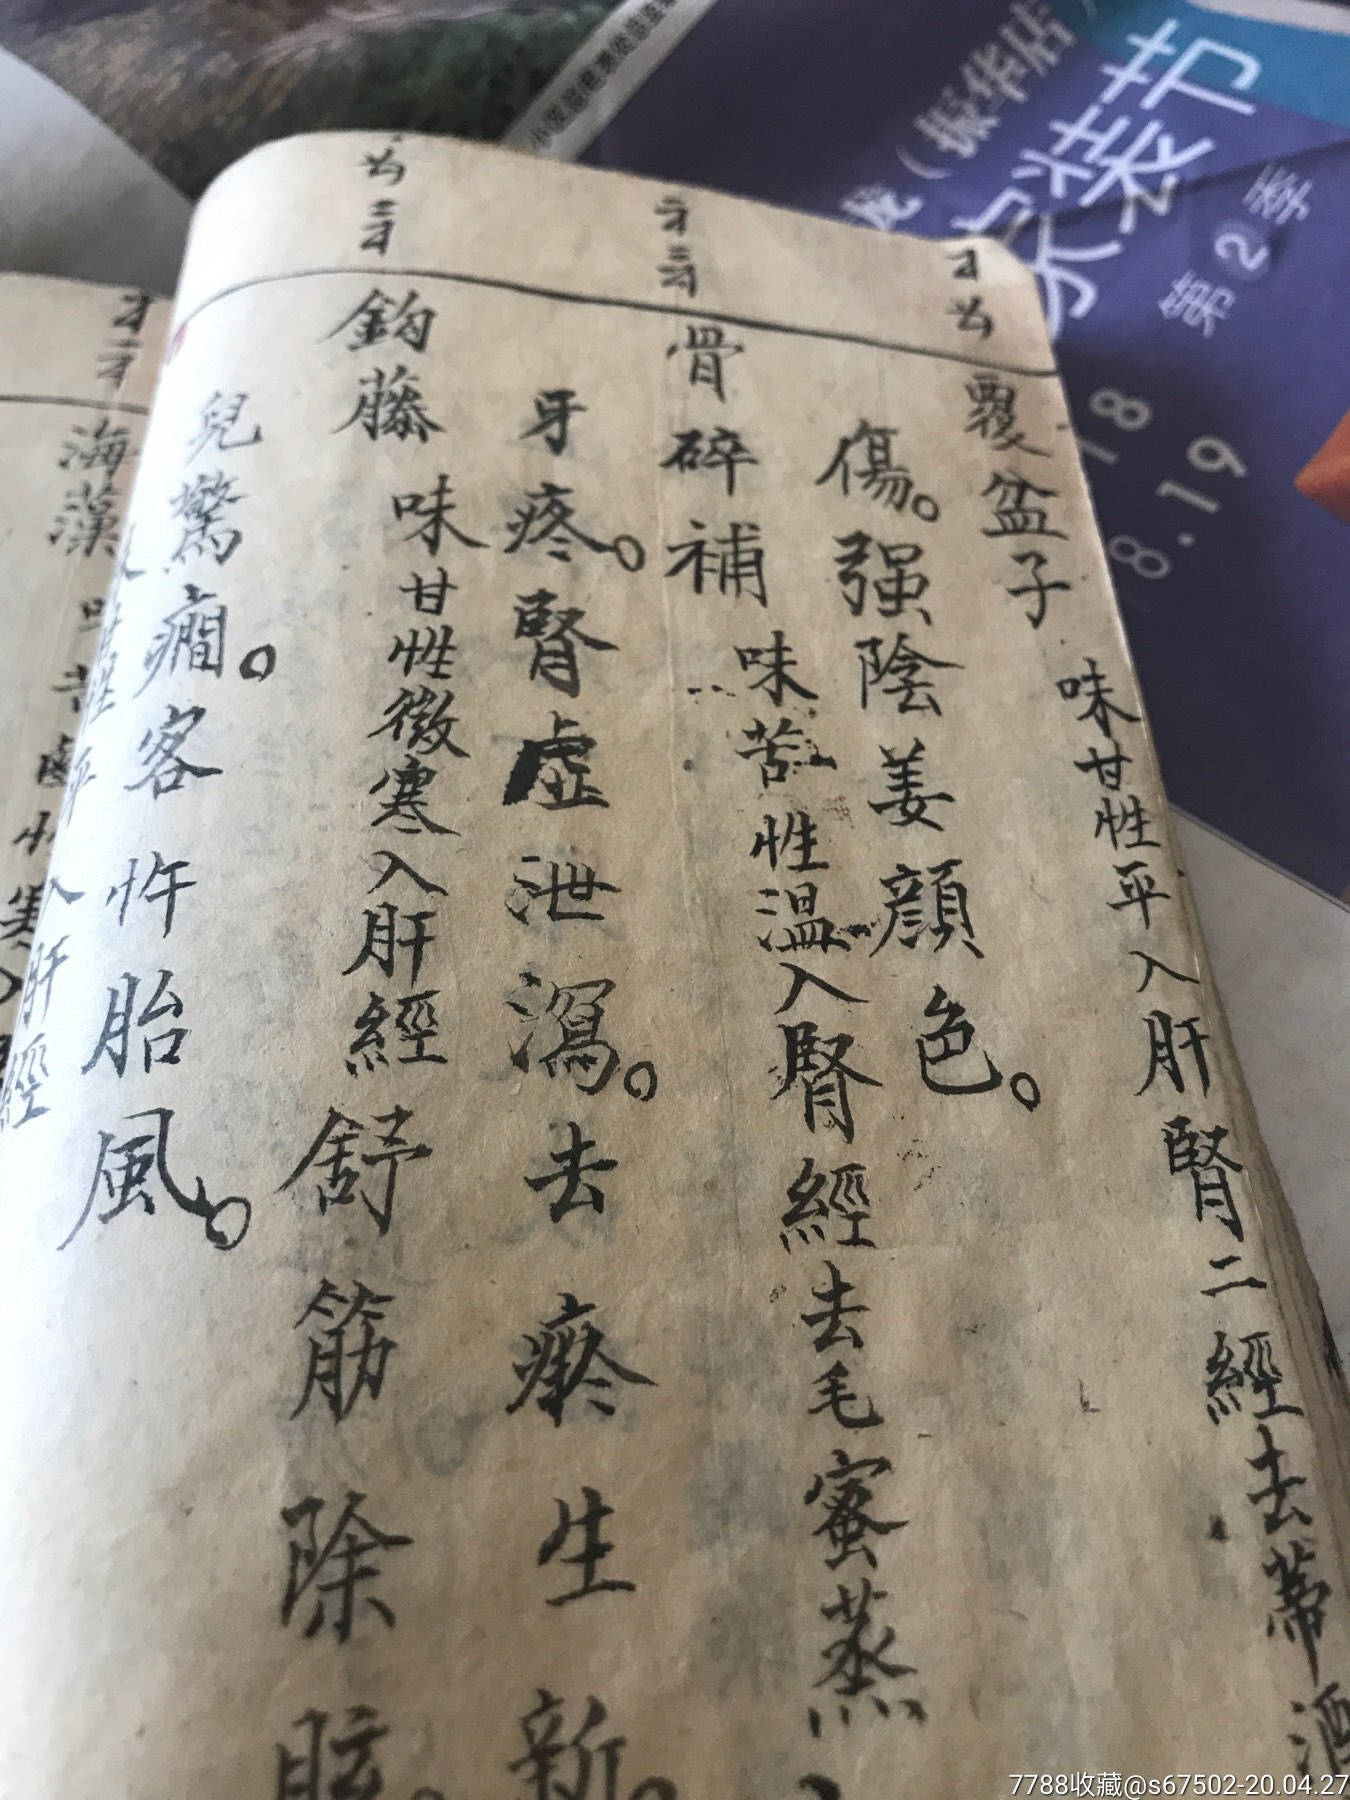 覆盆子 味甘性平入肝腎二經去蒂酒
傷。强陰姜顔色。
骨碎補 味苦性温入腎經去毛蜜蒸
牙疼。腎虚泄瀉。去瘀生新。
鈎藤 味甘性微寒入肝經 舒筋除眩。
兒驚癇。客忤胎風。
平入肝經
海藻 味苦鹹性寒入
装节
(振华店
第②季
18
8.19
7788收藏@s67502-20.04.27